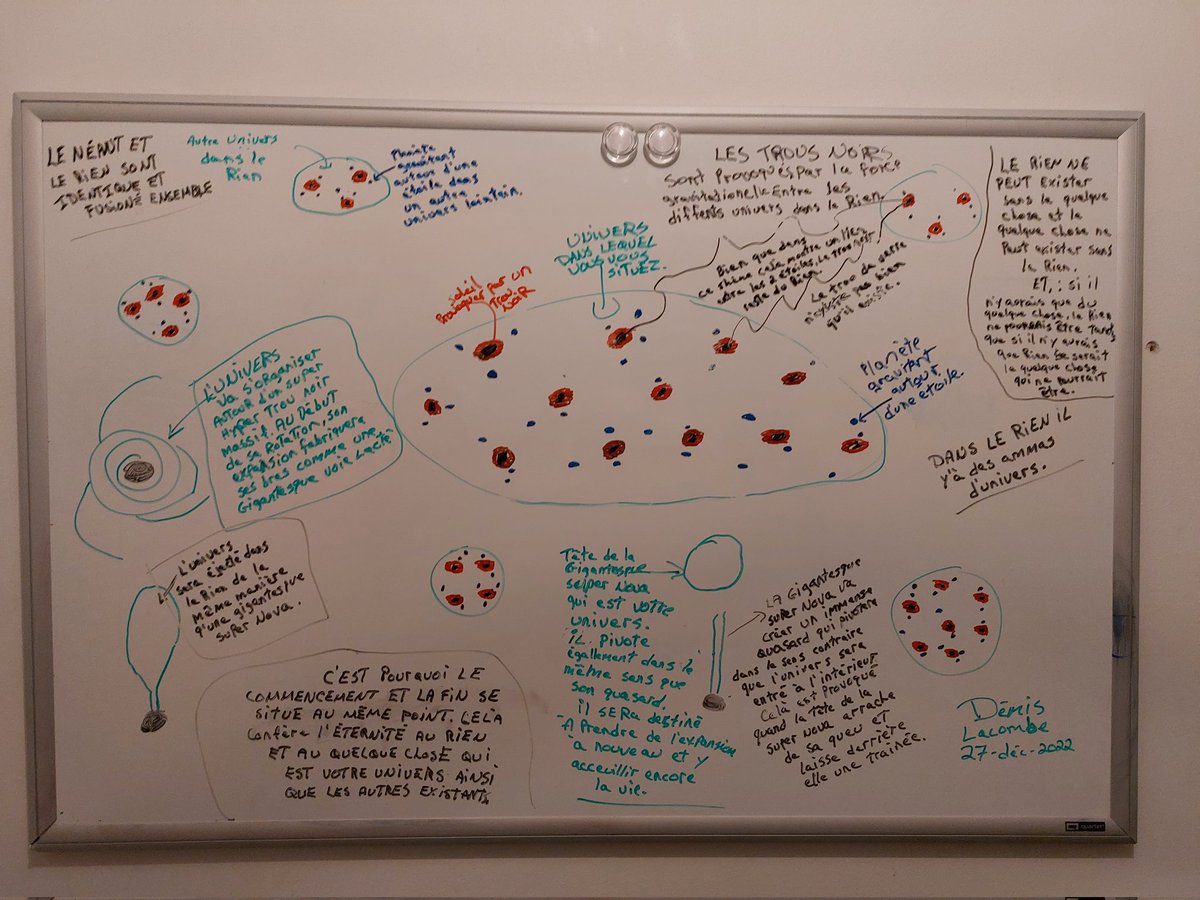 LE NÉANT ET
LE RIEN SONT
IDENTIQUE ET
FUSIONÉ ENSEMBLE
Autre Univers
dans le
Rien
Planète
gravitant
autour d'une
étoile dans
un autre
univers lointain.
LES TROUS NOIRS
sont Provoqués Par la force
gravitationelle Entre les
différents univers dans le Rien.
LE RIEN NE
PEUT Exister
sans le quelque
chose et le
quelque chose ne
Peut exister sans
le Rien.
ET, : si il
n'y aurais que du
quelque chose, le Rien
ne pourrais être Tandis
que si il n'y aurais
que Rien ce serait
le quelque chose
qui ne pourrait
être.
UNIVERS
DANS LEQUEL
VOUS VOUS
SITUEZ.
Bien que dans
ce shéma cela montre un lien
entre les 2 étoiles, le trou noir
reste du Rien.
Le trou de verre
n'existe pas bien
qu'il existe.
soleil
Provoquer par un
Trou
NOIR
Planète
gravitant
autour
d'une étoile.
L'UNIVERS
Va S'ORGANISER
AUTOUR D'un super
Hyper Trou noir
massif. AU DÉBUT
de sa Rotation, son
expansion fabriquera
ses bras comme une
Gigantesque voie Lacté
DANS LE RIEN IL
y'à des ammas
d'univers.
L'univers
sera éjecté dans
le Rien de la
même manière
q'une gigantesque
super Nova.
Tête de la
Gigantesque
super Nova
qui est votre
univers.
IL Pivote
également dans le
même sens que
son quasard.
il SERA destiné
A Prendre de l'expansion
à nouveau et y
acceuillir encore
la vie.
LA Gigantesque
super Nova va
créer un immense
quasard qui pivotera
dans le sens contraire
que l'univers sera
entré à l'intérieur
Celà est Provoqué
quand la tête de la
super Nova arrache
de sa queu et
laisse derrière
elle une trainée.
C'EST POURQUOI LE
COMMENCEMENT ET LA FIN SE
SITUE AU MÊME POINT. CELÀ
Confère L'ÉTERNITÉ AU RIEN
ET AU QUELQUE CHOSE QUI
EST VOTRE UNIVERS AINSI
QUE LES AUTRES EXISTANTS
Dêmis
Lacombe
27-déc-2022
QUARTET